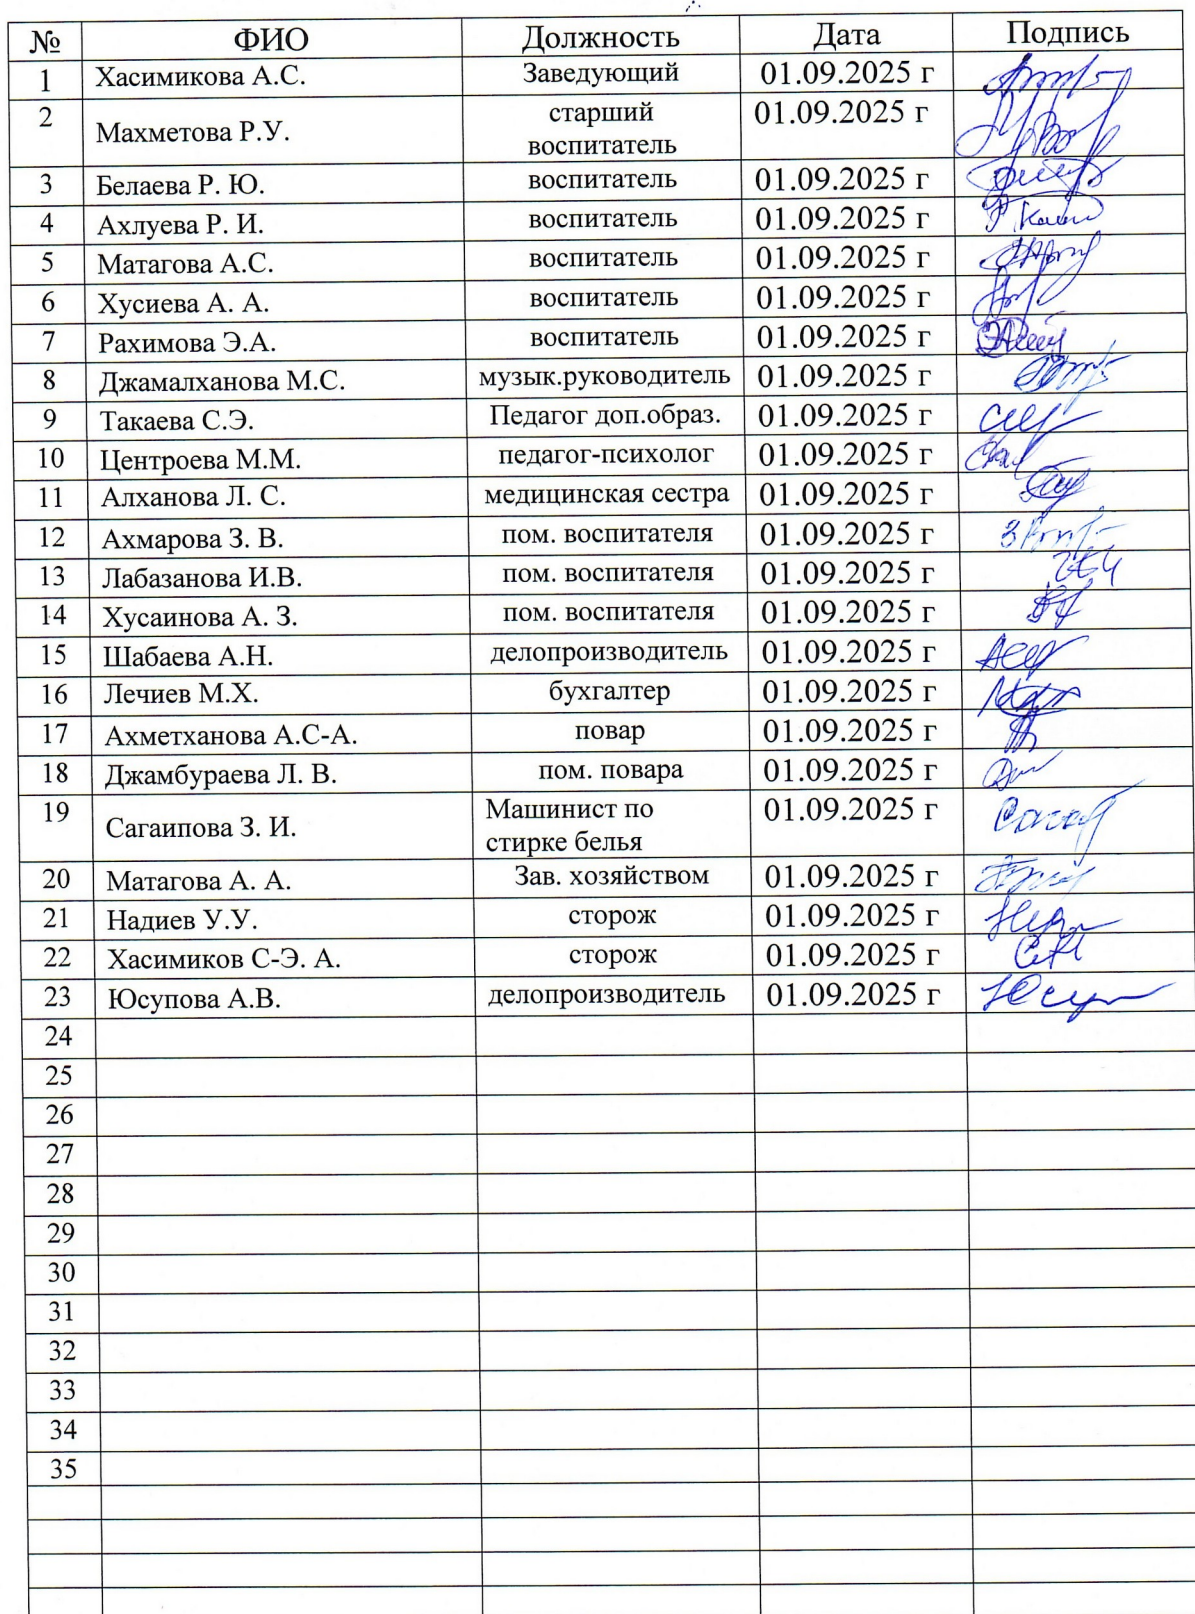 № ФИО Должность Дата Подпись
1 Хасимикова А.С. Заведующий 01.09.2025 г
2 Махметова Р.У. старший воспитатель 01.09.2025 г
3 Белаева Р. Ю. воспитатель 01.09.2025 г
4 Ахлуева Р. И. воспитатель 01.09.2025 г
5 Матагова А.С. воспитатель 01.09.2025 г
6 Хусиева А. А. воспитатель 01.09.2025 г
7 Рахимова Э.А. воспитатель 01.09.2025 г
8 Джамалханова М.С. музык.руководитель 01.09.2025 г
9 Такаева С.Э. Педагог доп.образ. 01.09.2025 г
10 Центроева М.М. педагог-психолог 01.09.2025 г
11 Алханова Л. С. медицинская сестра 01.09.2025 г
12 Ахмарова З. В. пом. воспитателя 01.09.2025 г
13 Лабазанова И.В. пом. воспитателя 01.09.2025 г
14 Хусаинова А. З. пом. воспитателя 01.09.2025 г
15 Шабаева А.Н. делопроизводитель 01.09.2025 г
16 Лечиев М.Х. бухгалтер 01.09.2025 г
17 Ахметханова А.С-А. повар 01.09.2025 г
18 Джамбураева Л. В. пом. повара 01.09.2025 г
19 Сагаипова З. И. Машинист по стирке белья 01.09.2025 г
20 Матагова А. А. Зав. хозяйством 01.09.2025 г
21 Надиев У.У. сторож 01.09.2025 г
22 Хасимиков С-Э. А. сторож 01.09.2025 г
23 Юсупова А.В. делопроизводитель 01.09.2025 г
24
25
26
27
28
29
30
31
32
33
34
35